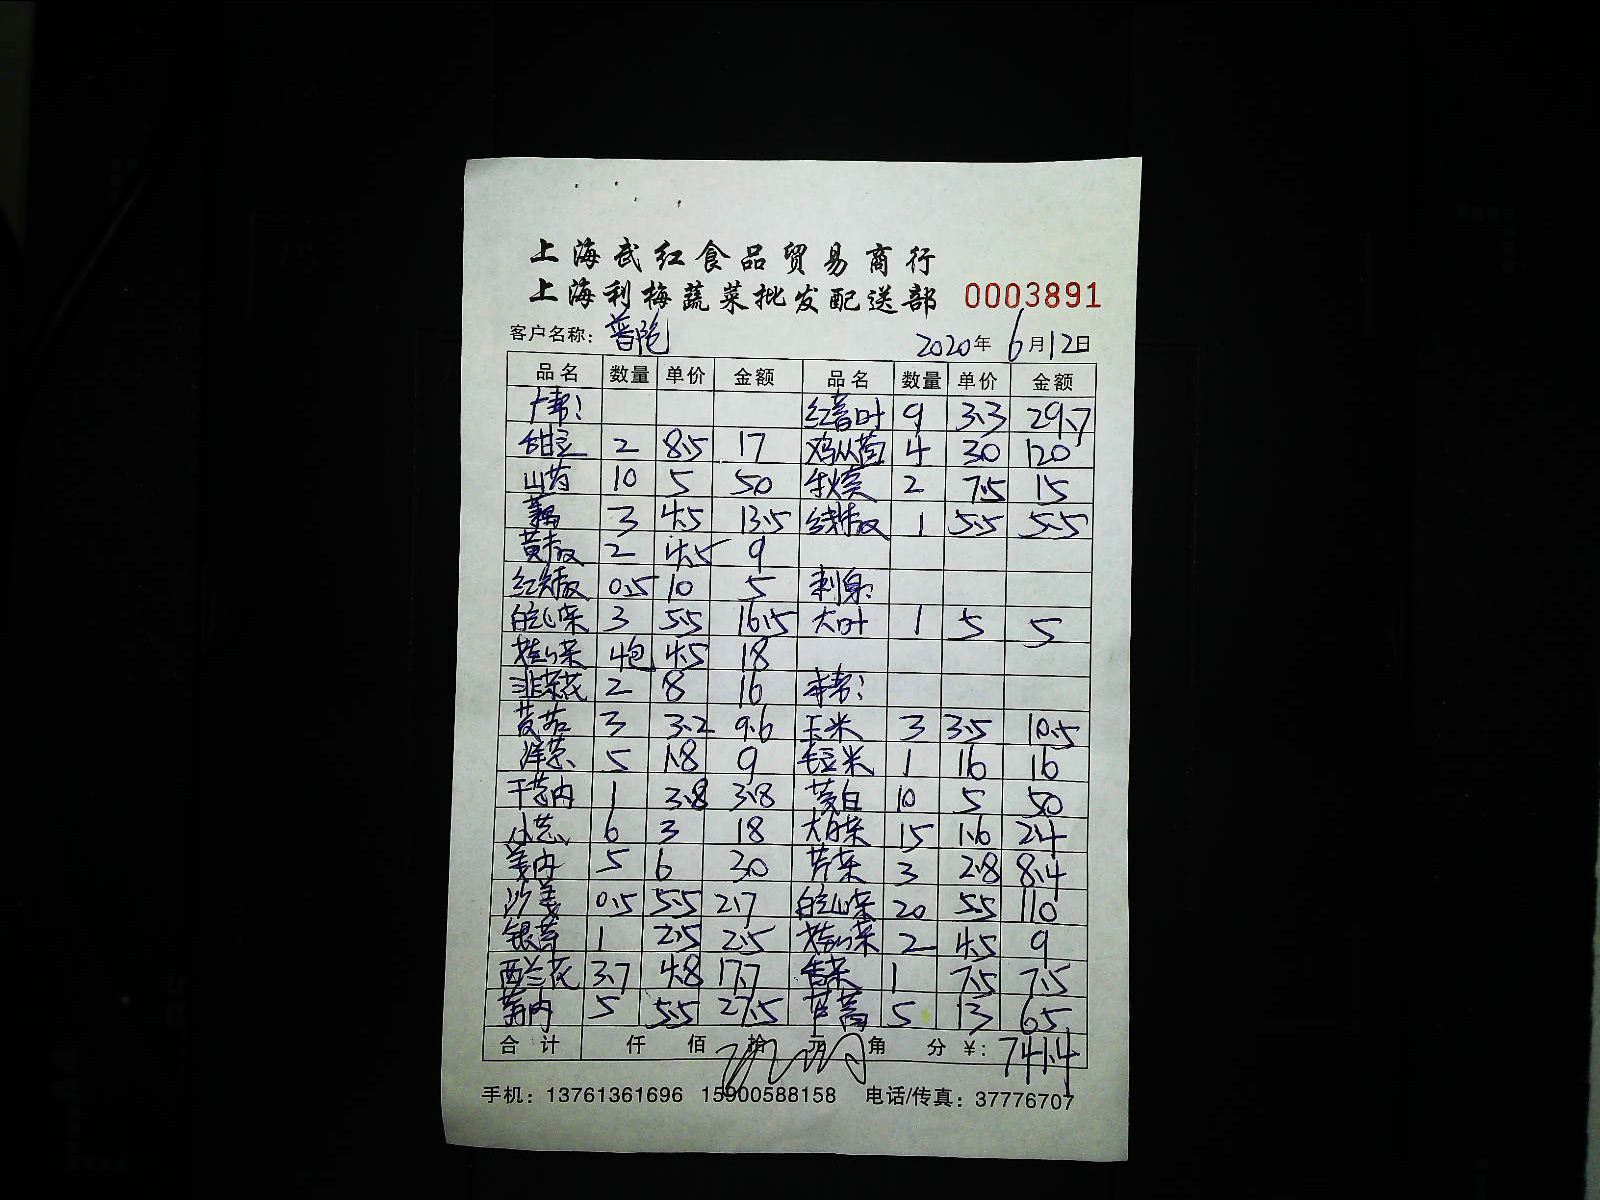 上海武红食品贸易商行
上海利梅蔬菜批发配送部 0003891
客户名称：普陀 2020年6月12日
品名 数量 单价 金额 品名 数量 单价 金额
广帮： 红苔叶 9 3.3 29.7
甜豆 2 8.5 17 鸡从菌 4 30 120
山药 10 5 50 2 7.5 15
藕 3 4.5 13.5 线椒 1 5.5 5.5
黄椒 2 4.5 9
红尖椒 0.5 10 5 刺身：
白玉心菜 3 5.5 16.5 大叶 1 5 5
娃娃菜 4包 4.5 18
韭菜花 2 8 16 本帮：
茨菇 3 3.2 9.6 玉米 3 3.5 10.5
洋葱 5 1.8 9 毛豆米 1 16 16
干葱肉 1 3.8 3.8 茭白 10 5 50
小葱 6 3 18 大白菜 15 1.6 24
姜肉 5 6 30 芹菜 3 2.8 8.4
沙姜 0.5 5.5 2.7 白玉心菜 20 5.5 110
银芽 1 2.5 2.5 娃娃菜 2 4.5 9
西兰花 3.7 4.8 17.7 香菜 1 7.5 7.5
莴肉 5 5.5 27.5 芦蒿 5 13 65
合计 仟 佰 拾 元 角 分 ￥：741.4
手机：13761361696 15900588158 电话/传真：37776707